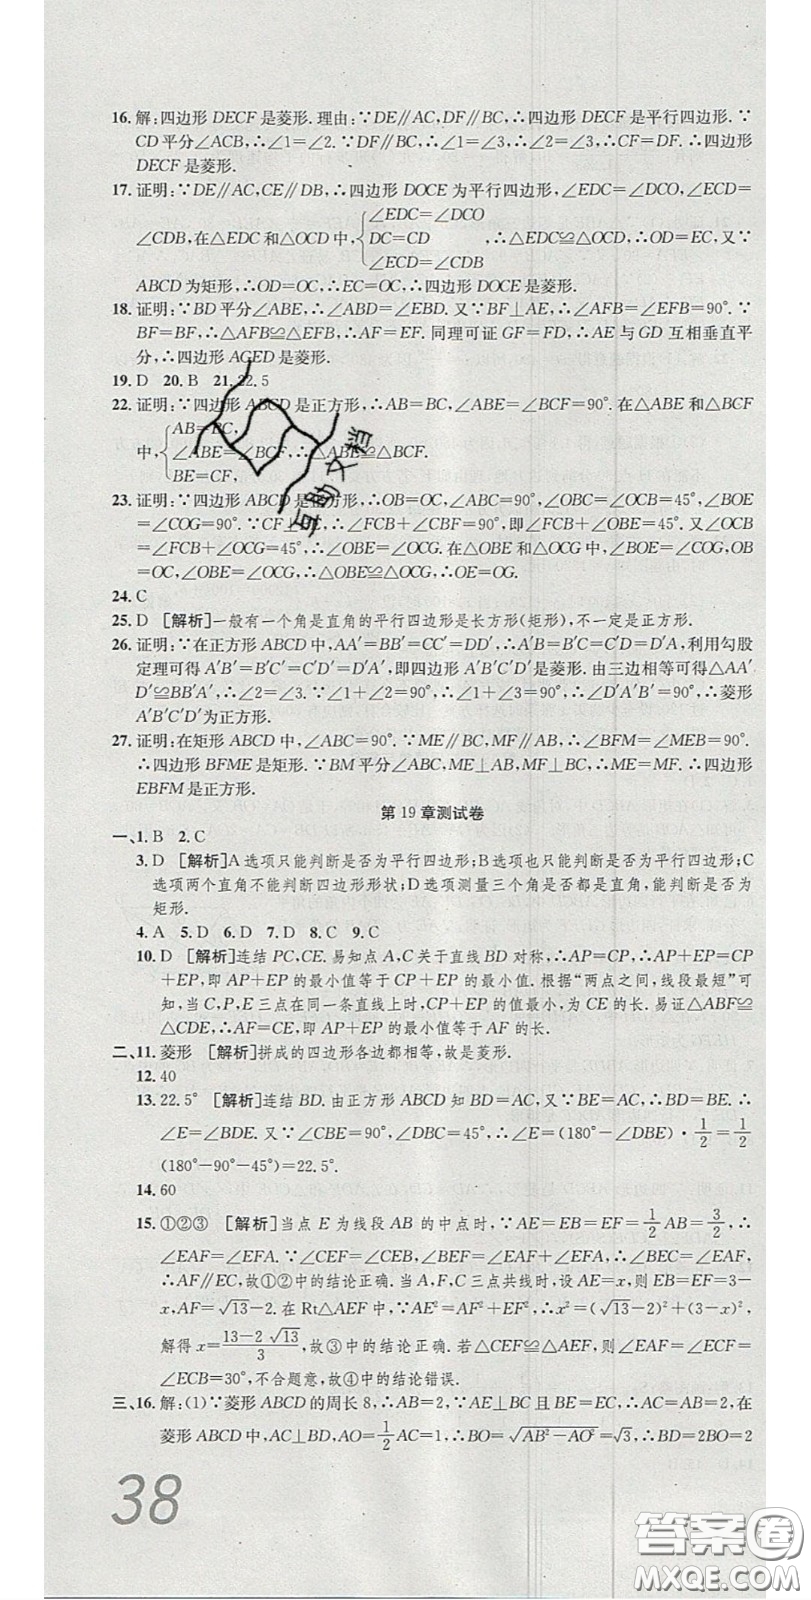 16. 解:四边形DECF是菱形.理由:∵DE∥AC,DF∥BC,∴四边形DECF是平行四边形.∵
CD平分∠ACB,∴∠1=∠2.∵DF∥BC,∴∠1=∠3,∴∠2=∠3,∴CF=DF.∴四边形
DECF是菱形.
17. 证明:∵DE∥AC,CE∥DB,∴四边形DOCE为平行四边形,∠EDC=∠DCO,∠ECD=
∠CDB,在△EDC和△OCD中,{∠EDC=∠DCO
DC=CD ,∴△EDC≌△OCD,∴OD=EC,又∵
∠ECD=∠CDB
ABCD为矩形,∴OD=OC,∴EC=OC,∴四边形DOCE是菱形.
18. 证明:∵BD平分∠ABE,∴∠ABD=∠EBD.又∵BF⊥AE,∴∠AFB=∠EFB=90°.∵
BF=BF,∴△AFB≌△EFB,∴AF=EF.同理可证GF=FD,∴AE与GD互相垂直平
分,∴四边形AGED是菱形.
19. D 20. B 21. 22.5
22. 证明:∵四边形ABCD是正方形,∴AB=BC,∠ABE=∠BCF=90°.在△ABE和△BCF
中,{AB=BC,
∠ABE=∠BCF,∴△ABE≌△BCF.
BE=CF,
23. 证明:∵四边形ABCD是正方形,∴OB=OC,∠ABC=90°,∠OBC=∠OCB=45°,∠BOE
=∠COG=90°.∵CF⊥BE,∴∠FCB+∠FBC=90°,即∠FCB+∠OBE=45°.又∠OCB
=∠FCB+∠OCG=45°,∴∠OBE=∠OCG.在△OBE和△OCG中,∠BOE=∠COG,OB
=OC,∠OBE=∠OCG,∴△OBE≌△OCG,∴OE=OG.
24. C
25. D [解析]一般有一个角是直角的平行四边形是长方形(矩形),不一定是正方形.
26. 证明:∵在正方形ABCD中,AA′=BB′=CC′=DD′,∴A′B=B′C=C′D=D′A,利用勾股
定理可得A′B′=B′C′=C′D′=D′A′,即四边形A′B′C′D′是菱形.由三边相等可得△AA′
D′≌BB′A′,∴∠2=∠3.∵∠1+∠2=90°,∴∠1+∠3=90°,∴∠D′A′B′=90°,∴菱形
A′B′C′D′为正方形.
27. 证明:在矩形ABCD中,∠ABC=90°.∵ME∥BC,MF∥AB,∴∠BFM=∠MEB=90°.
∴四边形BFME是矩形.∵BM平分∠ABC,ME⊥AB,MF⊥BC,∴ME=MF.∴四边形
EBFM是正方形.
第19章测试卷
一、1. B 2. C
3. D [解析]A选项只能判断是否为平行四边形;B选项也只能判断是否为平行四边形;C
选项两个直角不能判断四边形形状;D选项测量三个角是否都是直角,能判断是否为
矩形.
4. A 5. D 6. D 7. D 8. C 9. C
10. D [解析]连结PC,CE.易知点A,C关于直线BD对称,∴AP=CP,∴AP+EP=CP
+EP,即AP+EP的最小值等于CP+EP的最小值.根据“两点之间,线段最短”可
知,当C,P,E三点在同一条直线上时,CP+EP的值最小,为CE的长.易证△ABF≌
△CDE,∴AF=CE,即AP+EP的最小值等于AF的长.
二、11. 菱形 [解析]拼成的四边形各边都相等,故是菱形.
12. 40
13. 22.5° [解析]连结BD.由正方形ABCD知BD=AC,又∵BE=AC,∴BD=BE.∴
∠E=∠BDE.又∵∠CBE=90°,∠DBC=45°,∴∠E=(180°-∠DBE)·1/2=1/2
(180°-90°-45°)=22.5°.
14. 60
15. ①②③ [解析]当点E为线段AB的中点时,∵AE=EB=EF=1/2AB=3/2,∴
∠EAF=∠EFA.∵∠CEF=∠CEB,∠BEF=∠EAF+∠EFA,∴∠BEC=∠EAF,
∴AF∥EC,故①②中的结论正确.当A,F,C三点共线时,设AE=x,则EB=EF=3-
x,AF=√13-2.在Rt△AEF中,∵AE²=AF²+EF²,∴x²=(√13-2)²+(3-x)²,
解得x=(13-2√13)/3,故③中的结论正确.若△CEF≌△AEF,则∠EAF=∠ECF=
∠ECB=30°,不合题意,故④中的结论错误.
三、16. 解:(1)∵菱形ABCD的周长8,∴AB=2,∵AE⊥BC且BE=EC,∴AB=AC=2,在
菱形ABCD中,AC⊥BD,AO=1/2AC=1,∴BO=√(AB²-AO²)=√3,∴BD=2BO=2
38
互助文档
答案圈
MXQE.COM